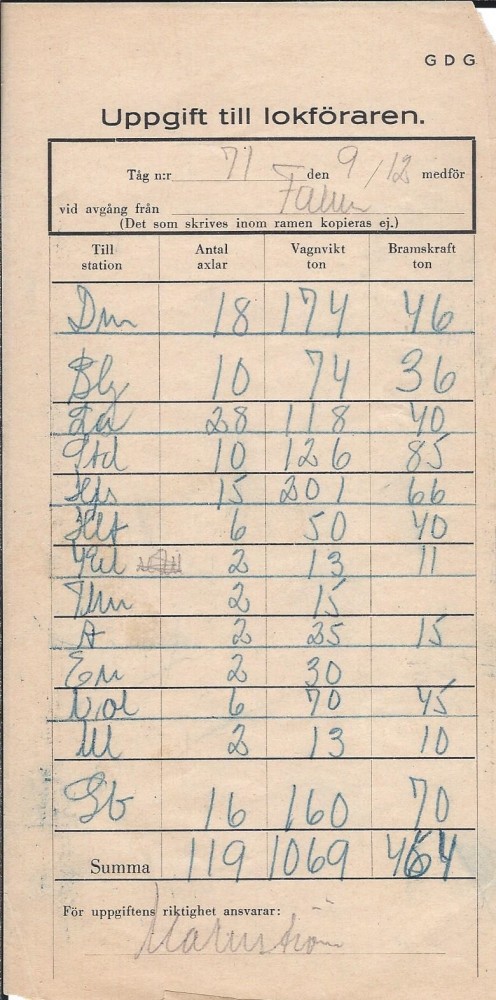 G D G
Uppgift till lokföraren.
Tåg n:r 71 den 9/12 medför
vid avgång från Falun
(Det som skrives inom ramen kopieras ej.)
Till station Antal axlar Vagnvikt ton Bramskraft ton
Dm 18 174 46
Blg 10 74 36
La 28 118 40
10 126 85
Hfs 15 201 66
Hlt 6 50 40
2 13 11
2 15
A 2 25 15
Em 2 30
Nol 6 70 45
2 13 10
Gb 16 160 70
Summa 119 1069 464
För uppgiftens riktighet ansvarar:
Malmström